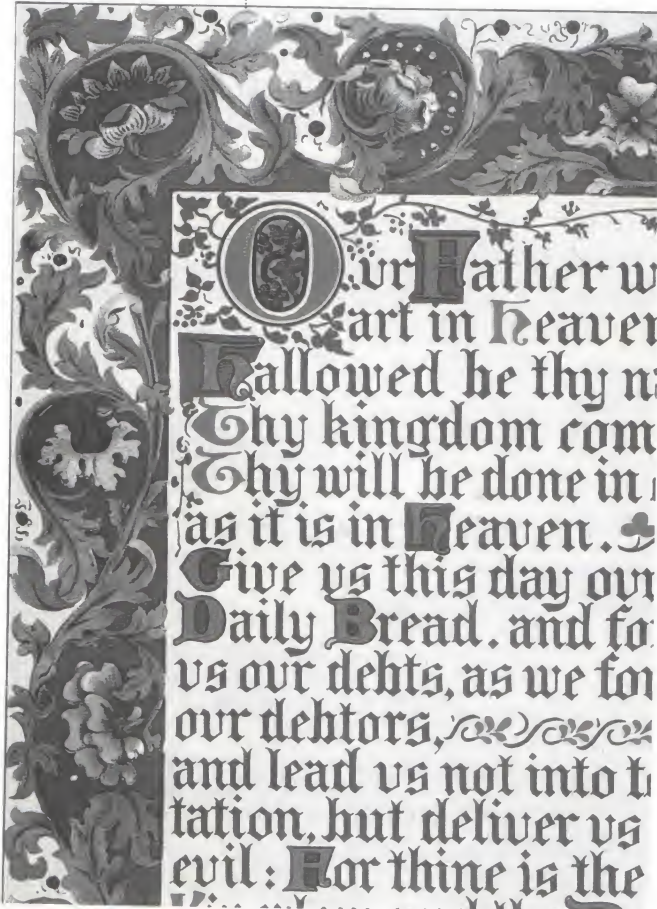 Our Father w
art in Heaven
Hallowed be thy na
Thy kingdom com
Thy will be done in
as it is in Heaven.
Give us this day our
Daily Bread. and fo
us our debts, as we for
our debtors,
and lead us not into te
tation, but deliver us
evil: For thine is the